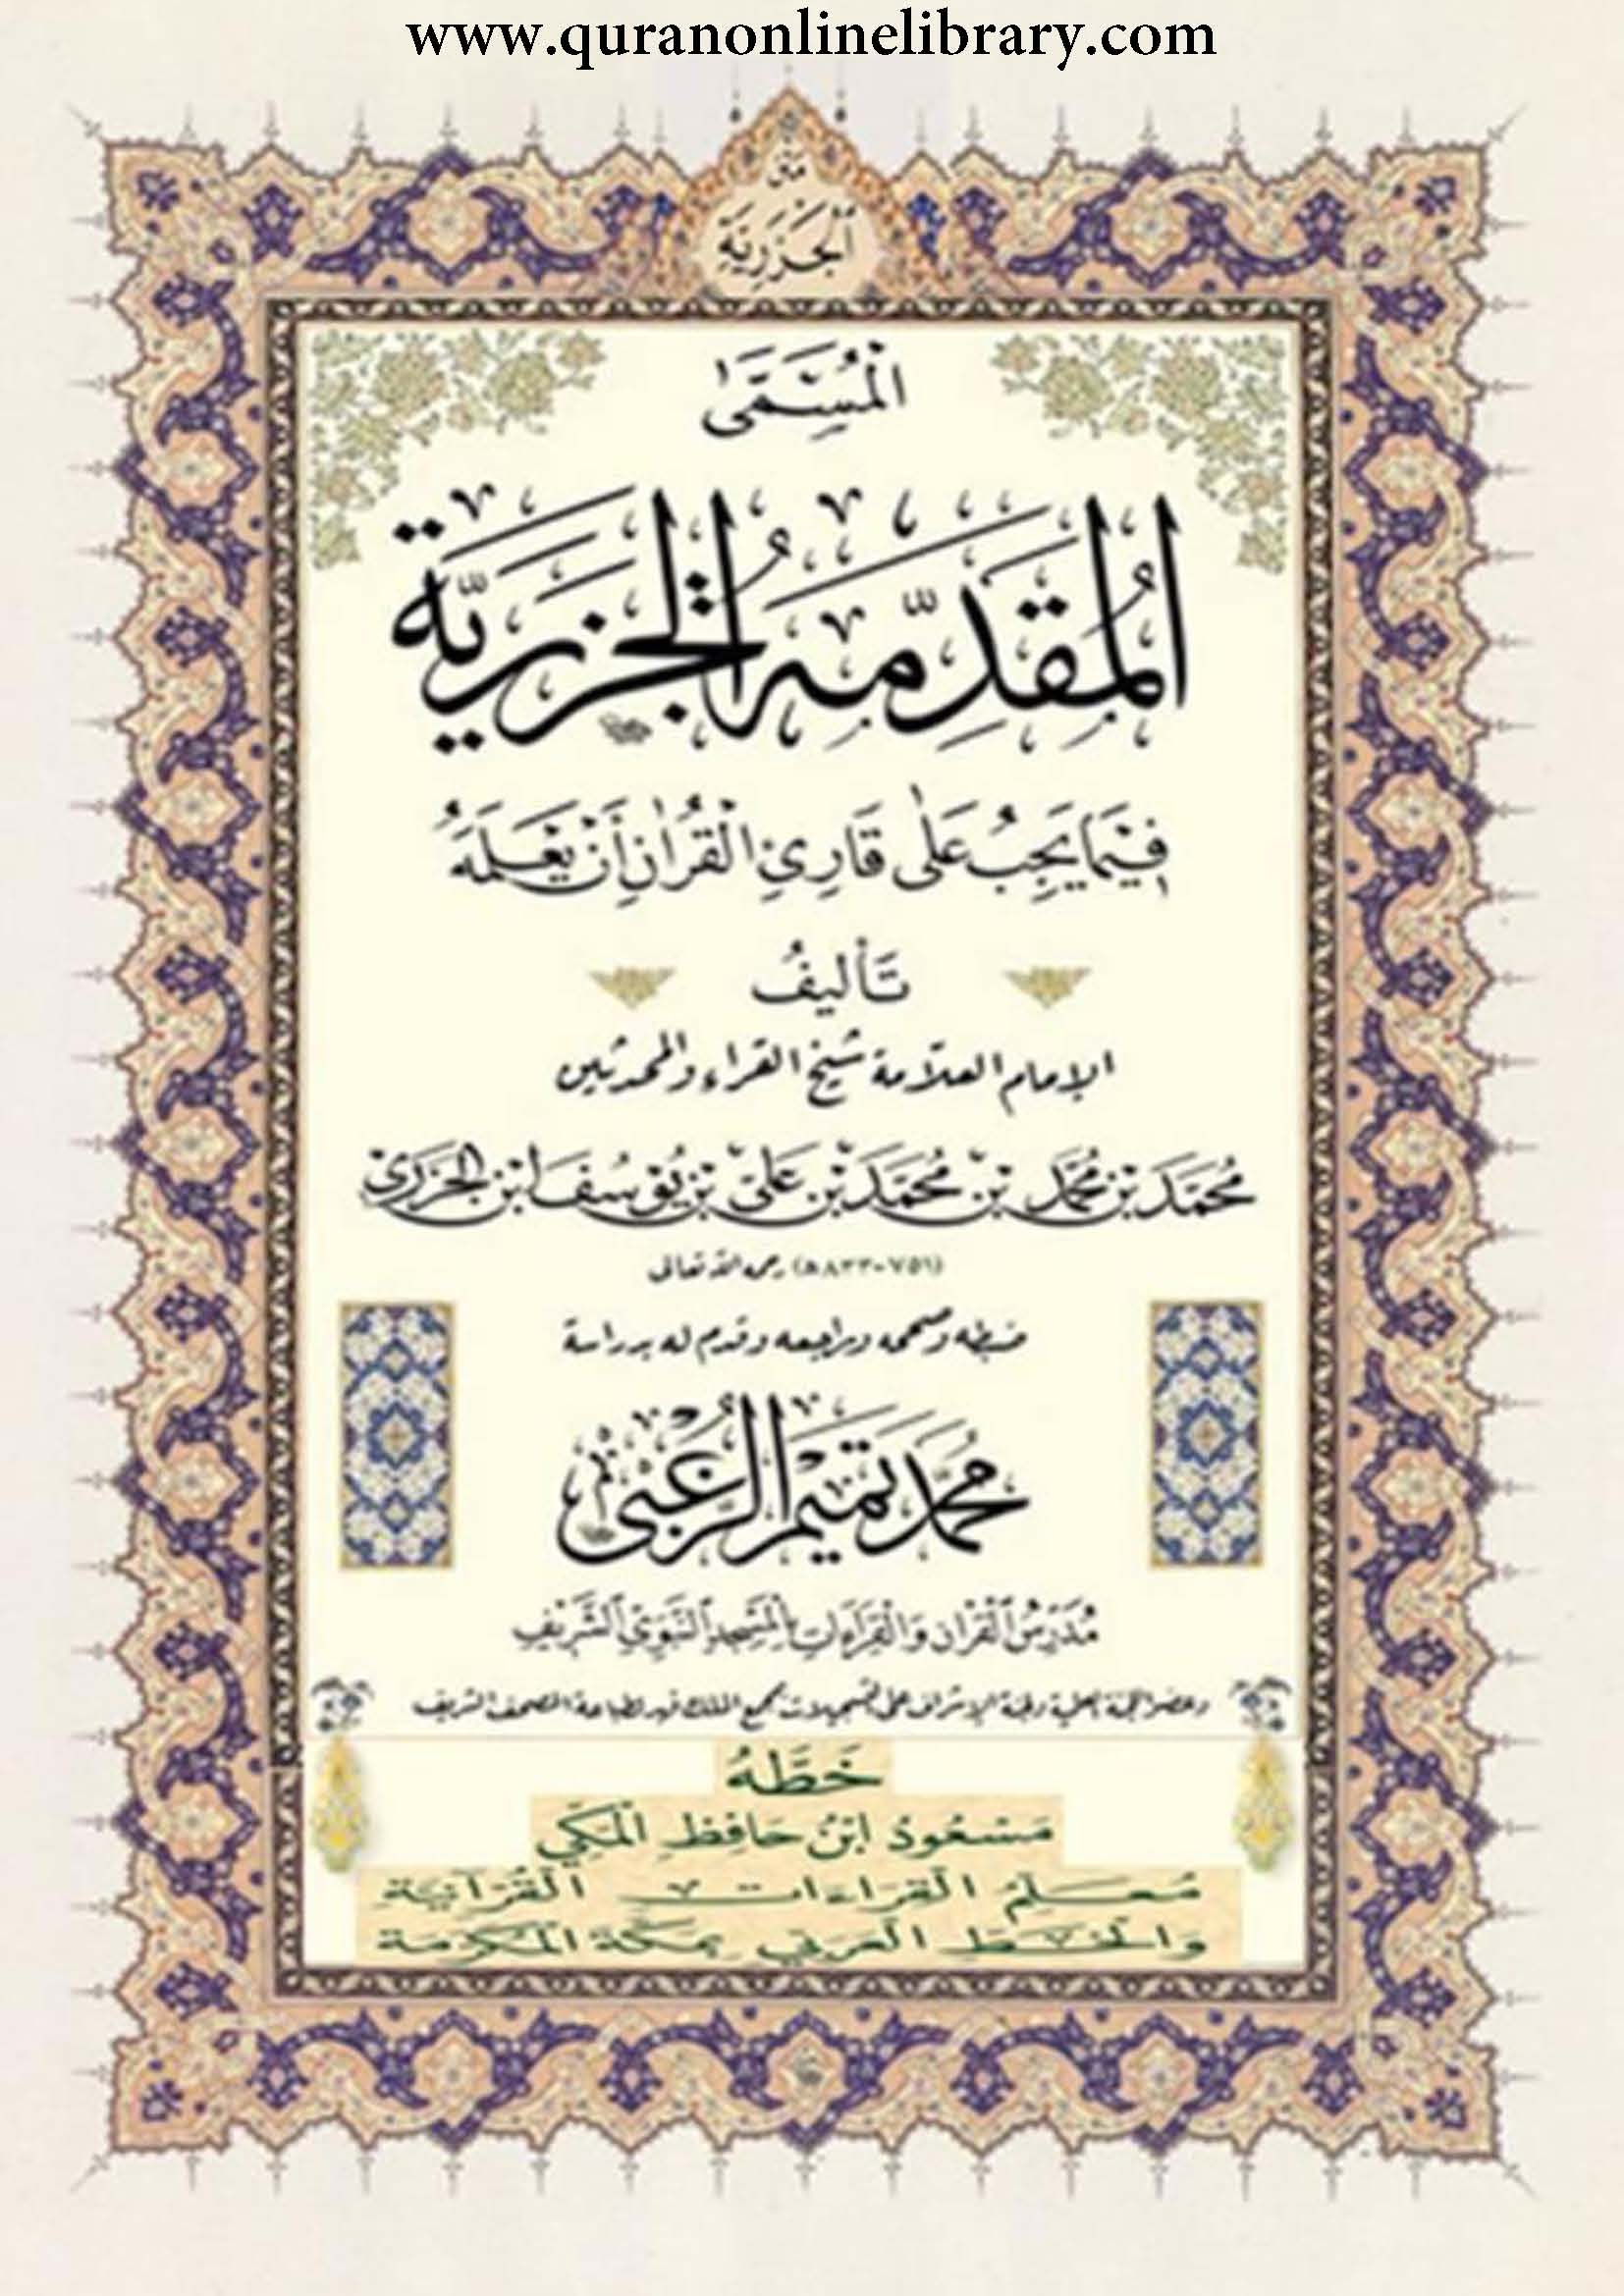 www.quranonlinelibrary.com
متن
الجَزَرِيَّةِ
المُسَمَّى
المُقَدِّمَةُ الجَزَرِيَّة
فِيمَا يَجِبُ عَلَى قَارِئِ الْقُرْاٰنِ أَنْ يَعْلَمَهُ
تَأْلِيفُ
الإمام العلاّمة شيخ القراء والمحدثين
مُحَمَّد بْن مُحَمَّد بْن مُحَمَّد بْن عَلِيّ بْن يُوْسُفَ ابْن الجَزَرِيّ
(٧٥١-٨٣٣ه) رحمه الله تعالى
ضبطه وصححه وراجعه وقدم له بدراسة
محمّد تميم الزّعبي
مُدَرِّسُ الْقُرْاٰنِ وَالْقِرَاءَاتِ بِالْمَسْجِدِ النَّبَوِيِّ الشَّرِيْفِ
وعضو اللجنة العلمية ولجنة الإشراف على التسجيلات بمجمع الملك فهد لطباعة المصحف الشريف
خَطَّهُ
مَسْعُودُ ابْنُ حَافِظِ الْمَكِّي
مُعَلِّمُ القِرَاءَات القُرْآنِيَّةِ
وَالخَطِّ العَرَبِي بِمَكَّةَ المُكَرَّمَة